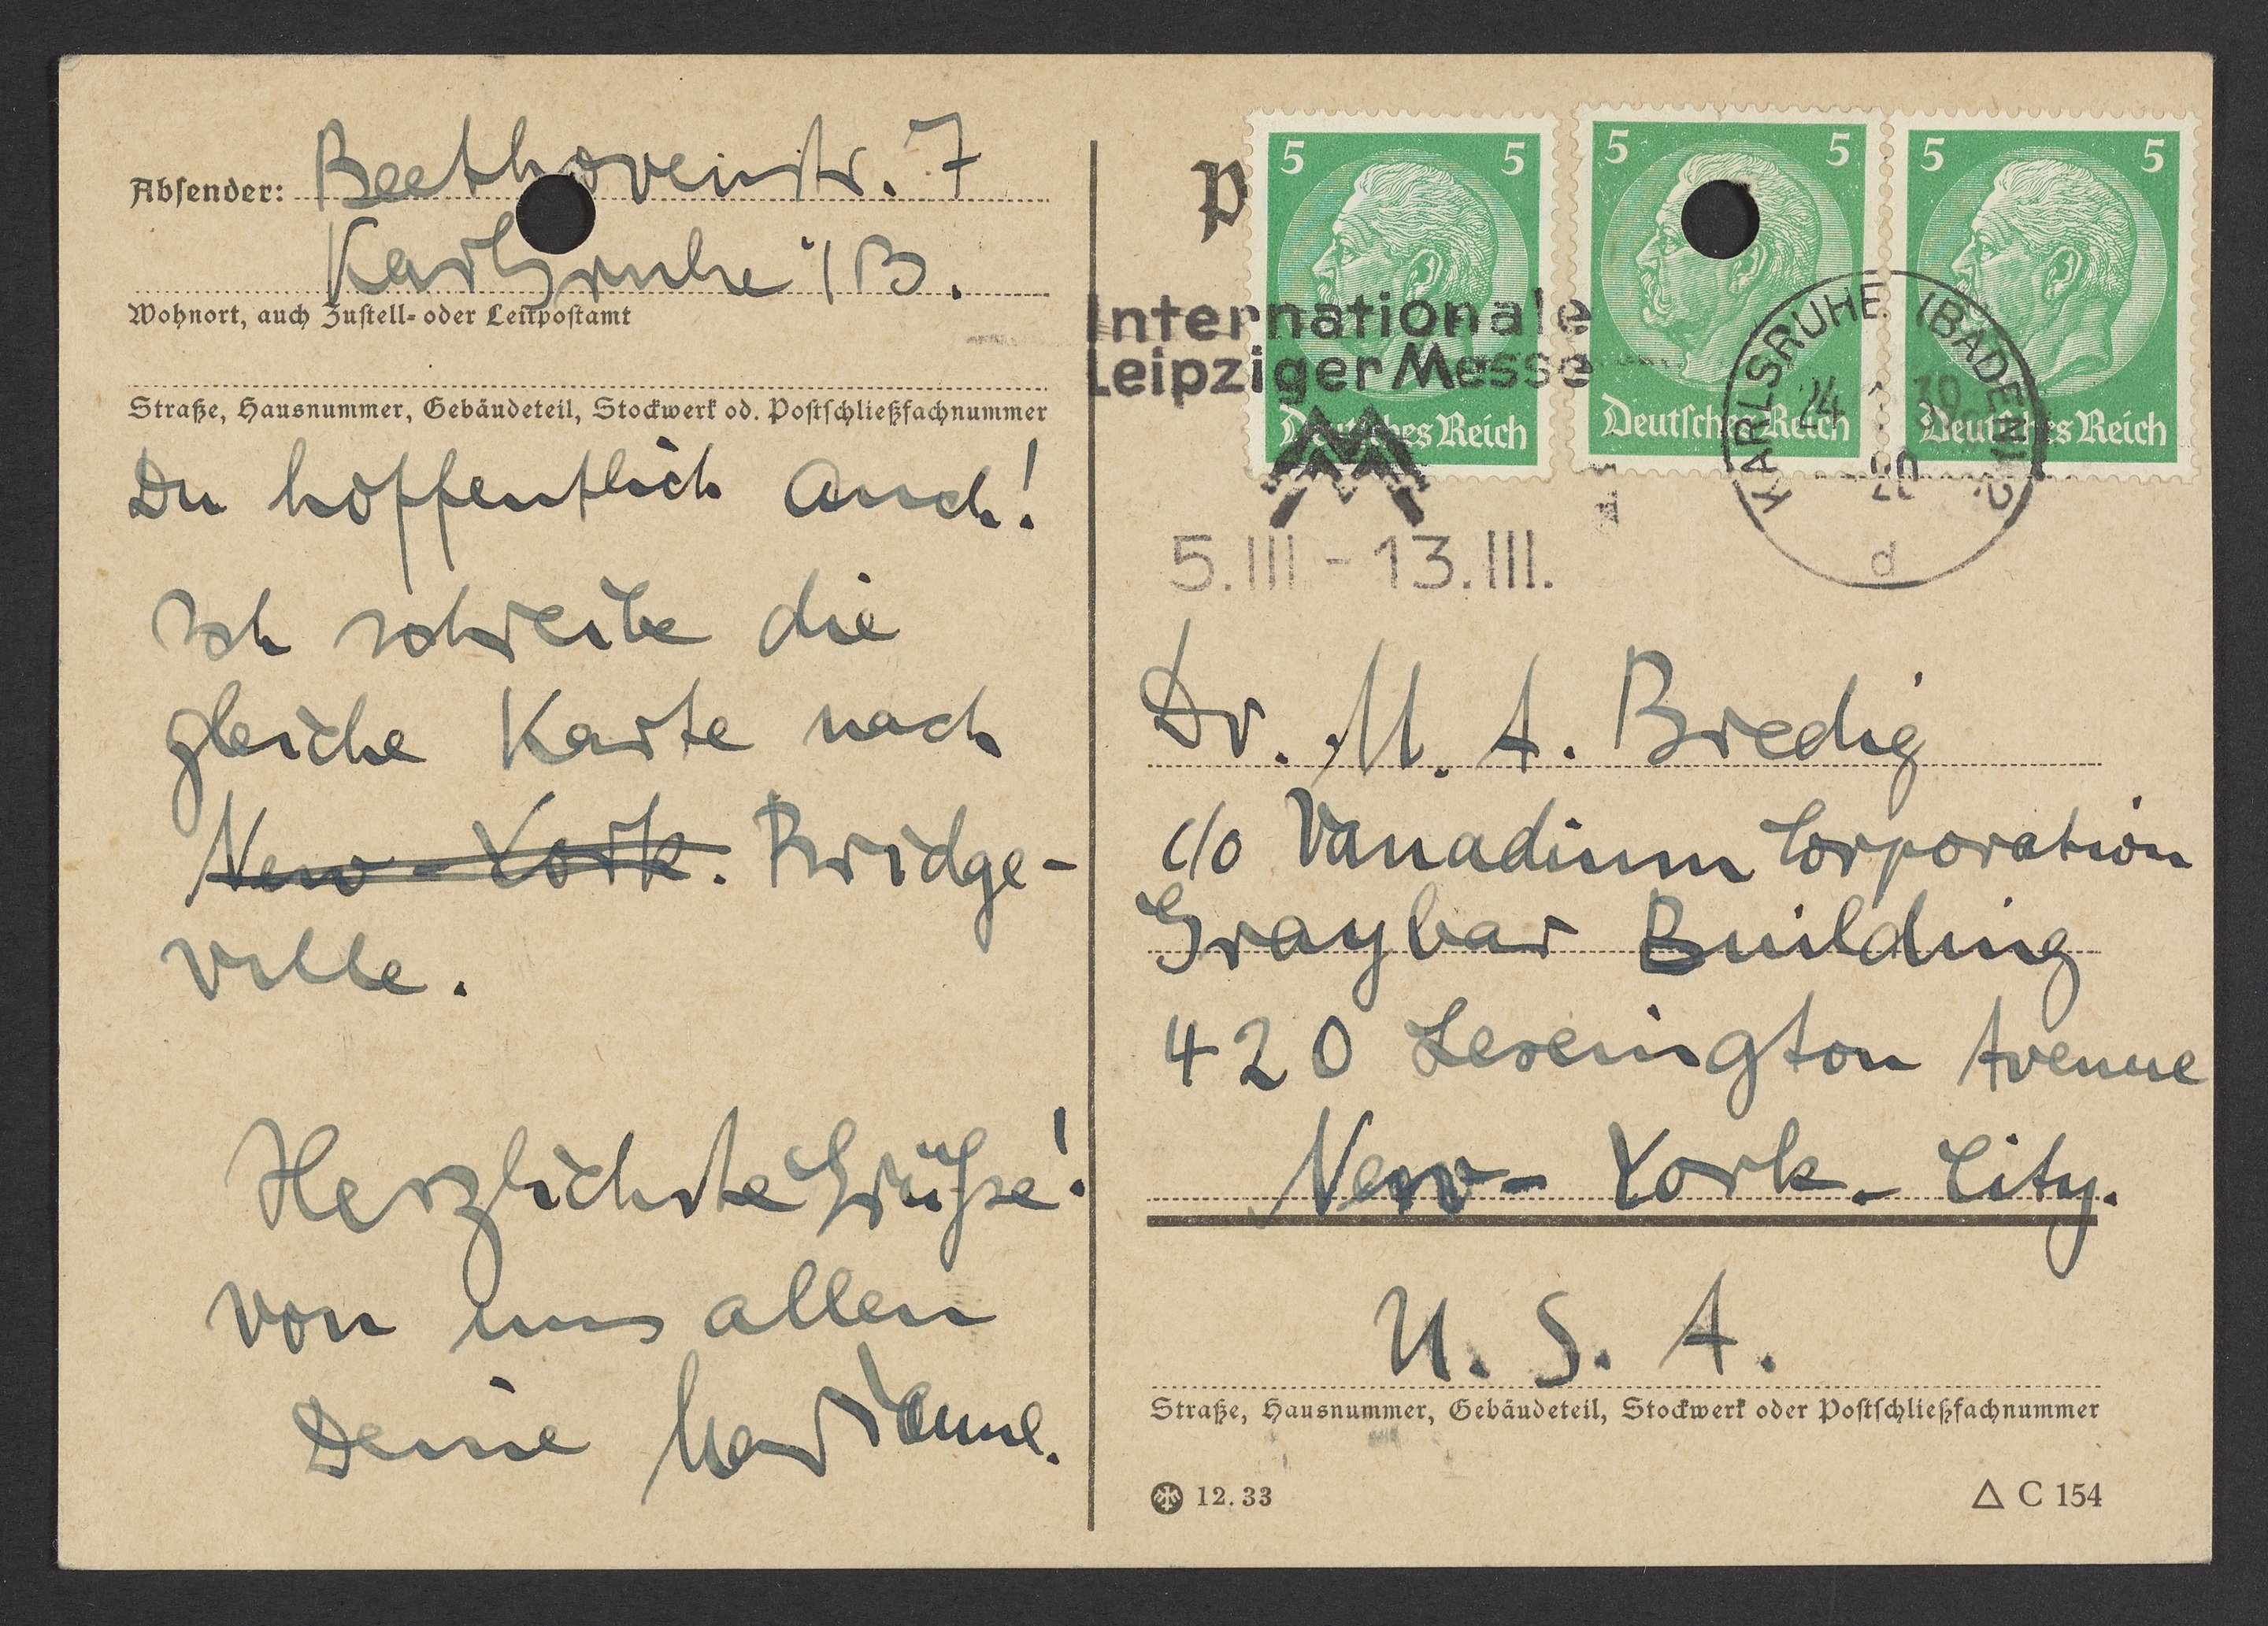 Absender: Beethovenstr. 7
Karlsruhe i/B.
Wohnort, auch Zustell- oder Leitpostamt
Straße, Hausnummer, Gebäudeteil, Stockwerk od. Postschließfachnummer
Du hoffentlich auch!
Ich schreibe die
gleiche Karte nach
New-York. Bridge-
ville.
Herzlichste Grüße!
von uns allen
Deine Marianne.
P
5 5
Deutsches Reich
5 5
Deutsches Reich
5 5
Deutsches Reich
Internationale
Leipziger Messe
5.III - 13.III.
KARLSRUHE (BADEN) 2
24
d
Dr. M. A. Bredig
c/o Vanadium Corporation
Graybar Building
420 Lexenington Avenue
New-York-City.
U. S. A.
Straße, Hausnummer, Gebäudeteil, Stockwerk oder Postschließfachnummer
12.33
△ C 154